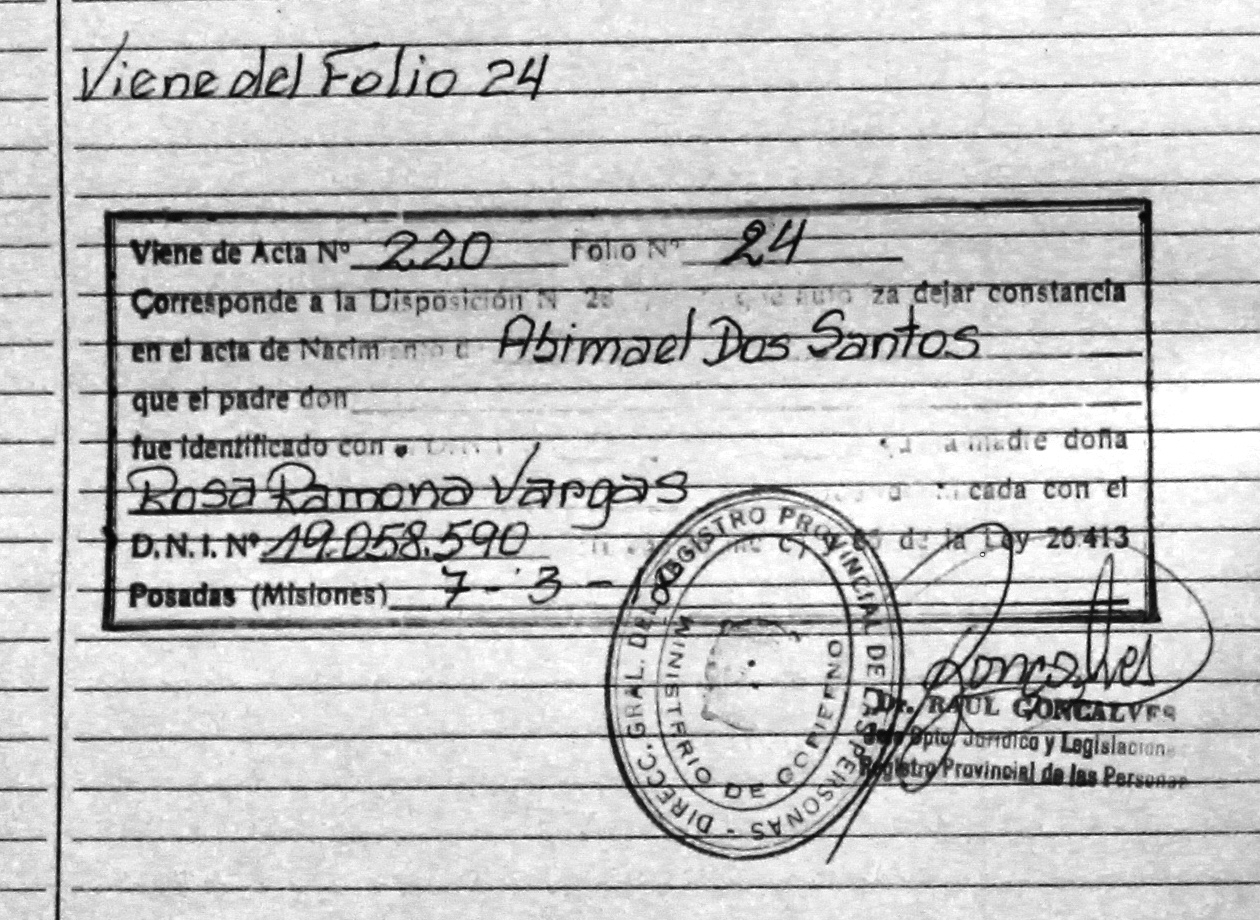 Viene del Folio 24
Viene de Acta Nº 220 Folio Nº 24
Corresponde a la Disposición N 28 za dejar constancia
en el acta de Nacim Abimael Dos Santos
que el padre don
fue identificado con madre doña
Rosa Ramona Vargas cada con el
D.N.I. Nº 19.058.590 de la Ley 26.413
Posadas (Misiones) 7-3-
DIRECC. GRAL. DEL REGISTRO PROVINCIAL DE LAS PERSONAS -
MINISTERIO DE GOBIERNO
Dr. RAUL GONCALVES
Jefe Dpto. Jurídico y Legislación
Registro Provincial de las Personas